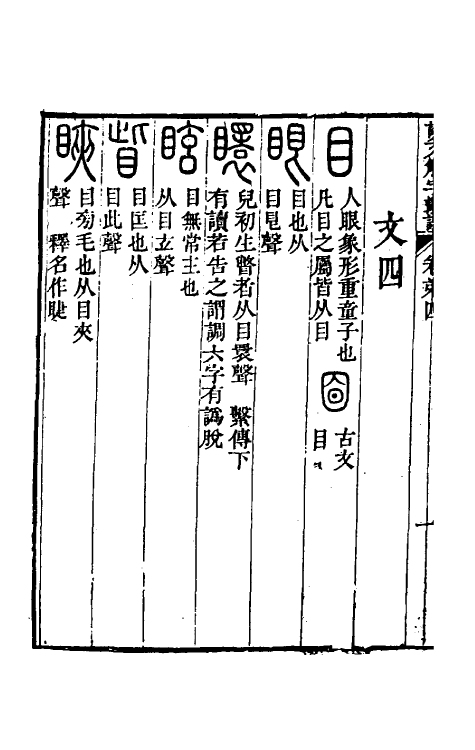 卷第四
一
文四
目
人眼象形重童子也
凡目之屬皆从目
古文
目
眼
目也从
目㫐聲
瞏
兒初生瞥者从目瞏聲 繫傳下
有讀若告之謂調六字有譌脫
眩
目無常主也
从目玄聲
眥
目匡也从
目此聲
䀹
目旁毛也从目夾
聲 釋名作睫